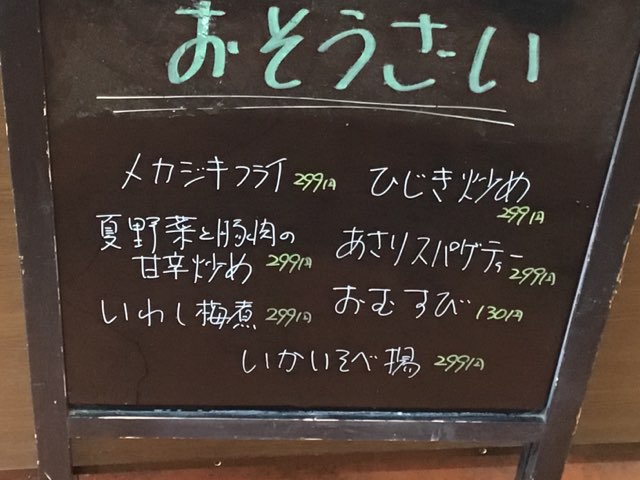 おそうざい
メカジキフライ 299円
ひじき炒め
299円
夏野菜と豚肉の
甘辛炒め 299円
あさりスパゲティー
299円
いわし梅煮 299円
おむすび 130円
いかいそべ揚 299円